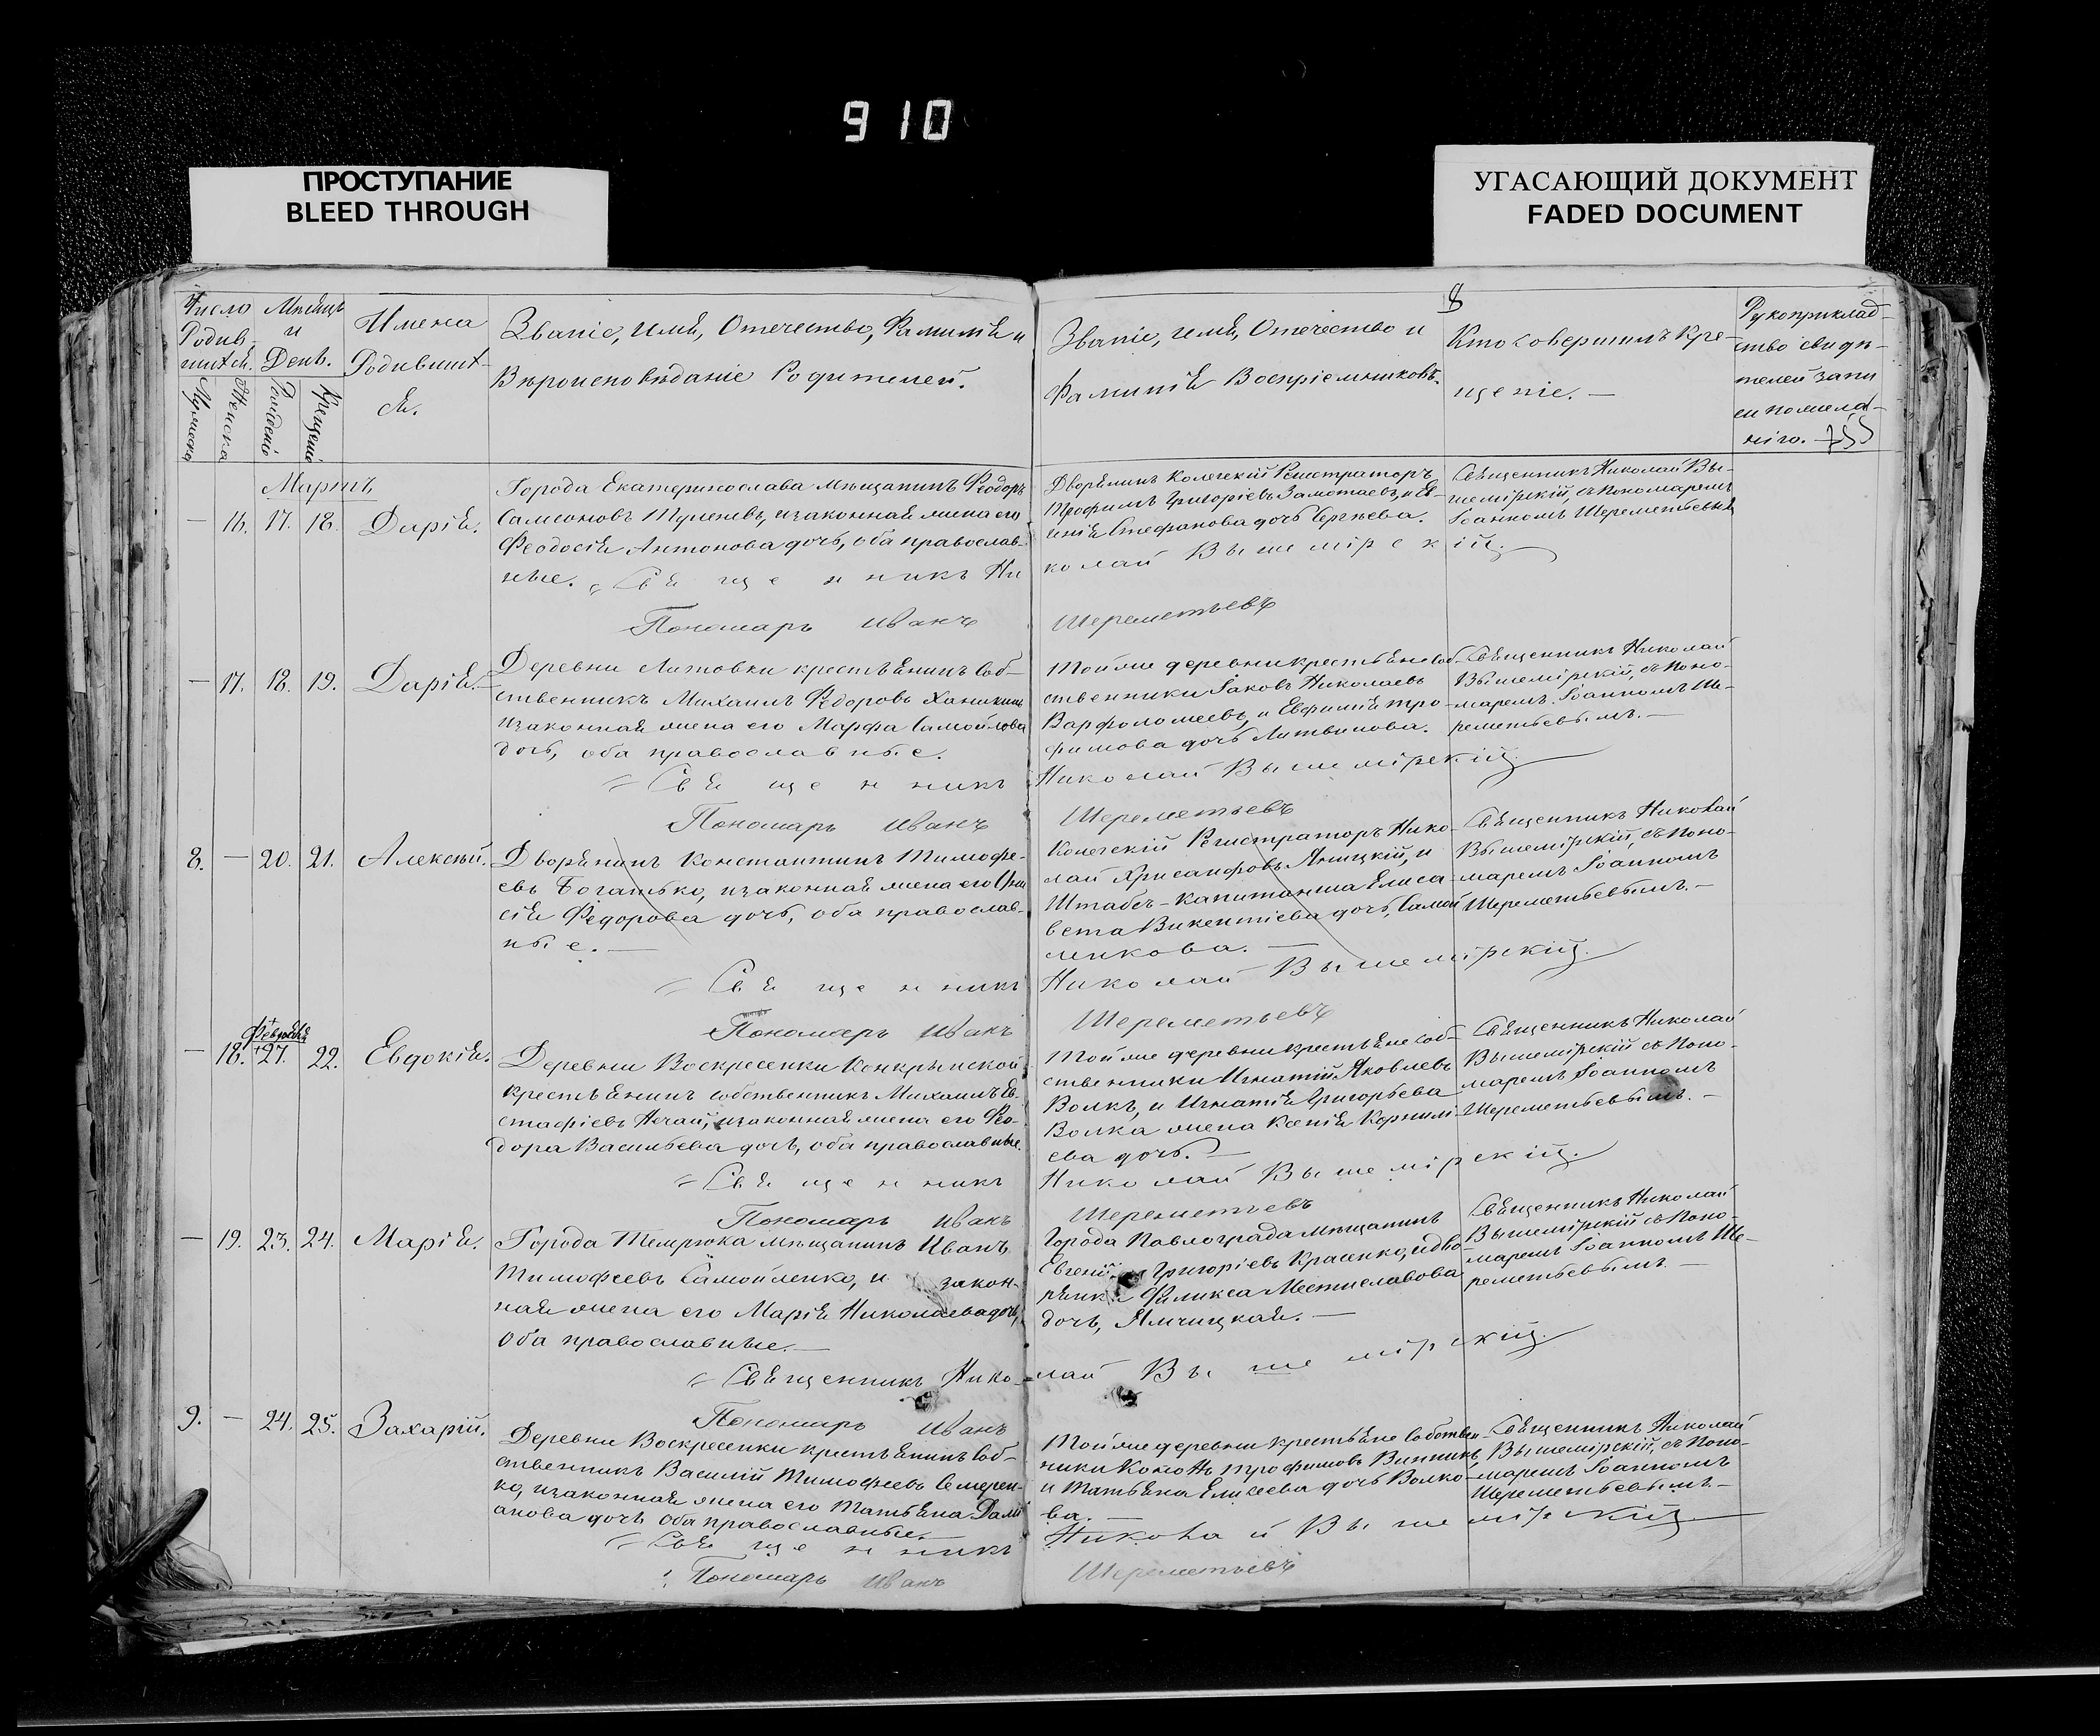 910
ПРОСТУПАНИЕ
BLEED THROUGH
УГАСАЮЩИЙ ДОКУМЕНТ
FADED DOCUMENT
Число Родив-шихся.
Мѣсяцъ и День.
Имена Родившихся.
Званіе, имя, Отечество, Фамилія и
Вѣроисповѣданіе Родителей.
Мужеска
Женска
Рожденія
Крещенія
8
Званіе, имя, Отечество и
Фамилія Воспріемниковъ.
Кто совершилъ Кре-
щеніе. —
Рукоприклад-
ство свидѣ-
телей запи
си по жела-
нію.
Мартъ
— 16. 17. 18. Дарія.
Города Екатеринослава мѣщанинъ Феодоръ
Самсоновъ и законная жена его
Феодосія Антонова дочь, оба православ-
ные. Священникъ Ни
Пономарь Иванъ
Дворянинъ Колежскій Регистраторъ
Трофимъ Григоріевъ и Ев-
генія Стефанова дочь Сергѣева.
колай Вышемірскій.
Шереметьевъ
Священникъ Николай Вы-
шемірскій, съ Пономаремъ
Іоанномъ Шереметьевымъ
— 17. 18. 19. Дарія.
Деревни Литовки крестьянинъ Соб-
ственникъ Михаилъ Федоровъ
и законная жена его Марфа Самойлова
дочь, оба православные.
Священникъ
Пономарь Иванъ
Той же деревни крестьяне соб-
ственники Іаковъ Николаевъ
Варфоломеевъ, и Евфимія Тро-
фимова дочь Литвинова.
Николай Вышемірскій
Шереметьевъ
Священникъ Николай
Вышемірскій, съ Поно-
маремъ Іоанномъ Ше-
реметьевымъ. —
8. — 20. 21. Алексѣй.
Дворянинъ Константинъ Тимофе-
евъ Богатько, и законная жена его
сія Федорова дочь, оба православ-
ные. —
Священникъ
Пономарь Иванъ
Колежскій Регистраторъ Нико-
лай Хрисанфовъ и
Штабсъ-капитанша Елиса-
вета Викентіева дочь, Самой
ленкова. —
Николай Вышемірскій.
Шереметьевъ
Священникъ Николай
Вышемірскій, съ Поно-
маремъ Іоанномъ
Шереметьевымъ. —
Февраля
— 18. 27. 22. Евдокія.
Деревни Воскресенки Конкрынской
крестьянинъ собственникъ Михаилъ Ев-
стафіевъ Нечай, и законная жена его Фео-
дора Васильева дочь, оба православные.
Священникъ
Пономарь Иванъ
Той же деревни крестьяне соб-
ственники Игнатій Яковлевъ
Волкъ, и Игнатія Григорьева
Волка жена Ксенія Корнилі-
ева дочь. —
Николай Вышемірскій.
Шереметьевъ
Священникъ Николай
Вышемірскій съ Поно-
маремъ Іоанномъ
Шереметьевымъ. —
— 19. 23. 24. Марія.
Города Темрюка мѣщанинъ Иванъ
Тимофеевъ Самойленко, и закон-
ная жена его Марія Николаева дочь,
оба православные. —
Священникъ Нико-
Пономарь Иванъ
Города Павлограда мѣщанинъ
Евгеній Григоріевъ Красенко, и дво-
рянка Филикса Мстиславова
дочь, —
лай Вышемірскій.
Священникъ Николай
Вышемірскій съ Поно-
маремъ Іоанномъ Ше-
реметьевымъ. —
9. — 24. 25. Захарій.
Деревни Воскресенки крестьянинъ Соб-
ственникъ Василій Тимофеевъ Семерен-
ко, и законная жена его Татьяна Дамі
анова дочь оба православные. —
Священникъ
Пономарь Иванъ
Той же деревни крестьяне Собствен-
ники Кононъ Трофимовъ Винникъ
и Татьяна Елисеева дочь Волко-
ва. —
Николай Вышемірскій
Шереметьевъ
Священникъ Николай
Вышемірскій, съ Поно-
маремъ Іоанномъ
Шереметьевымъ. —